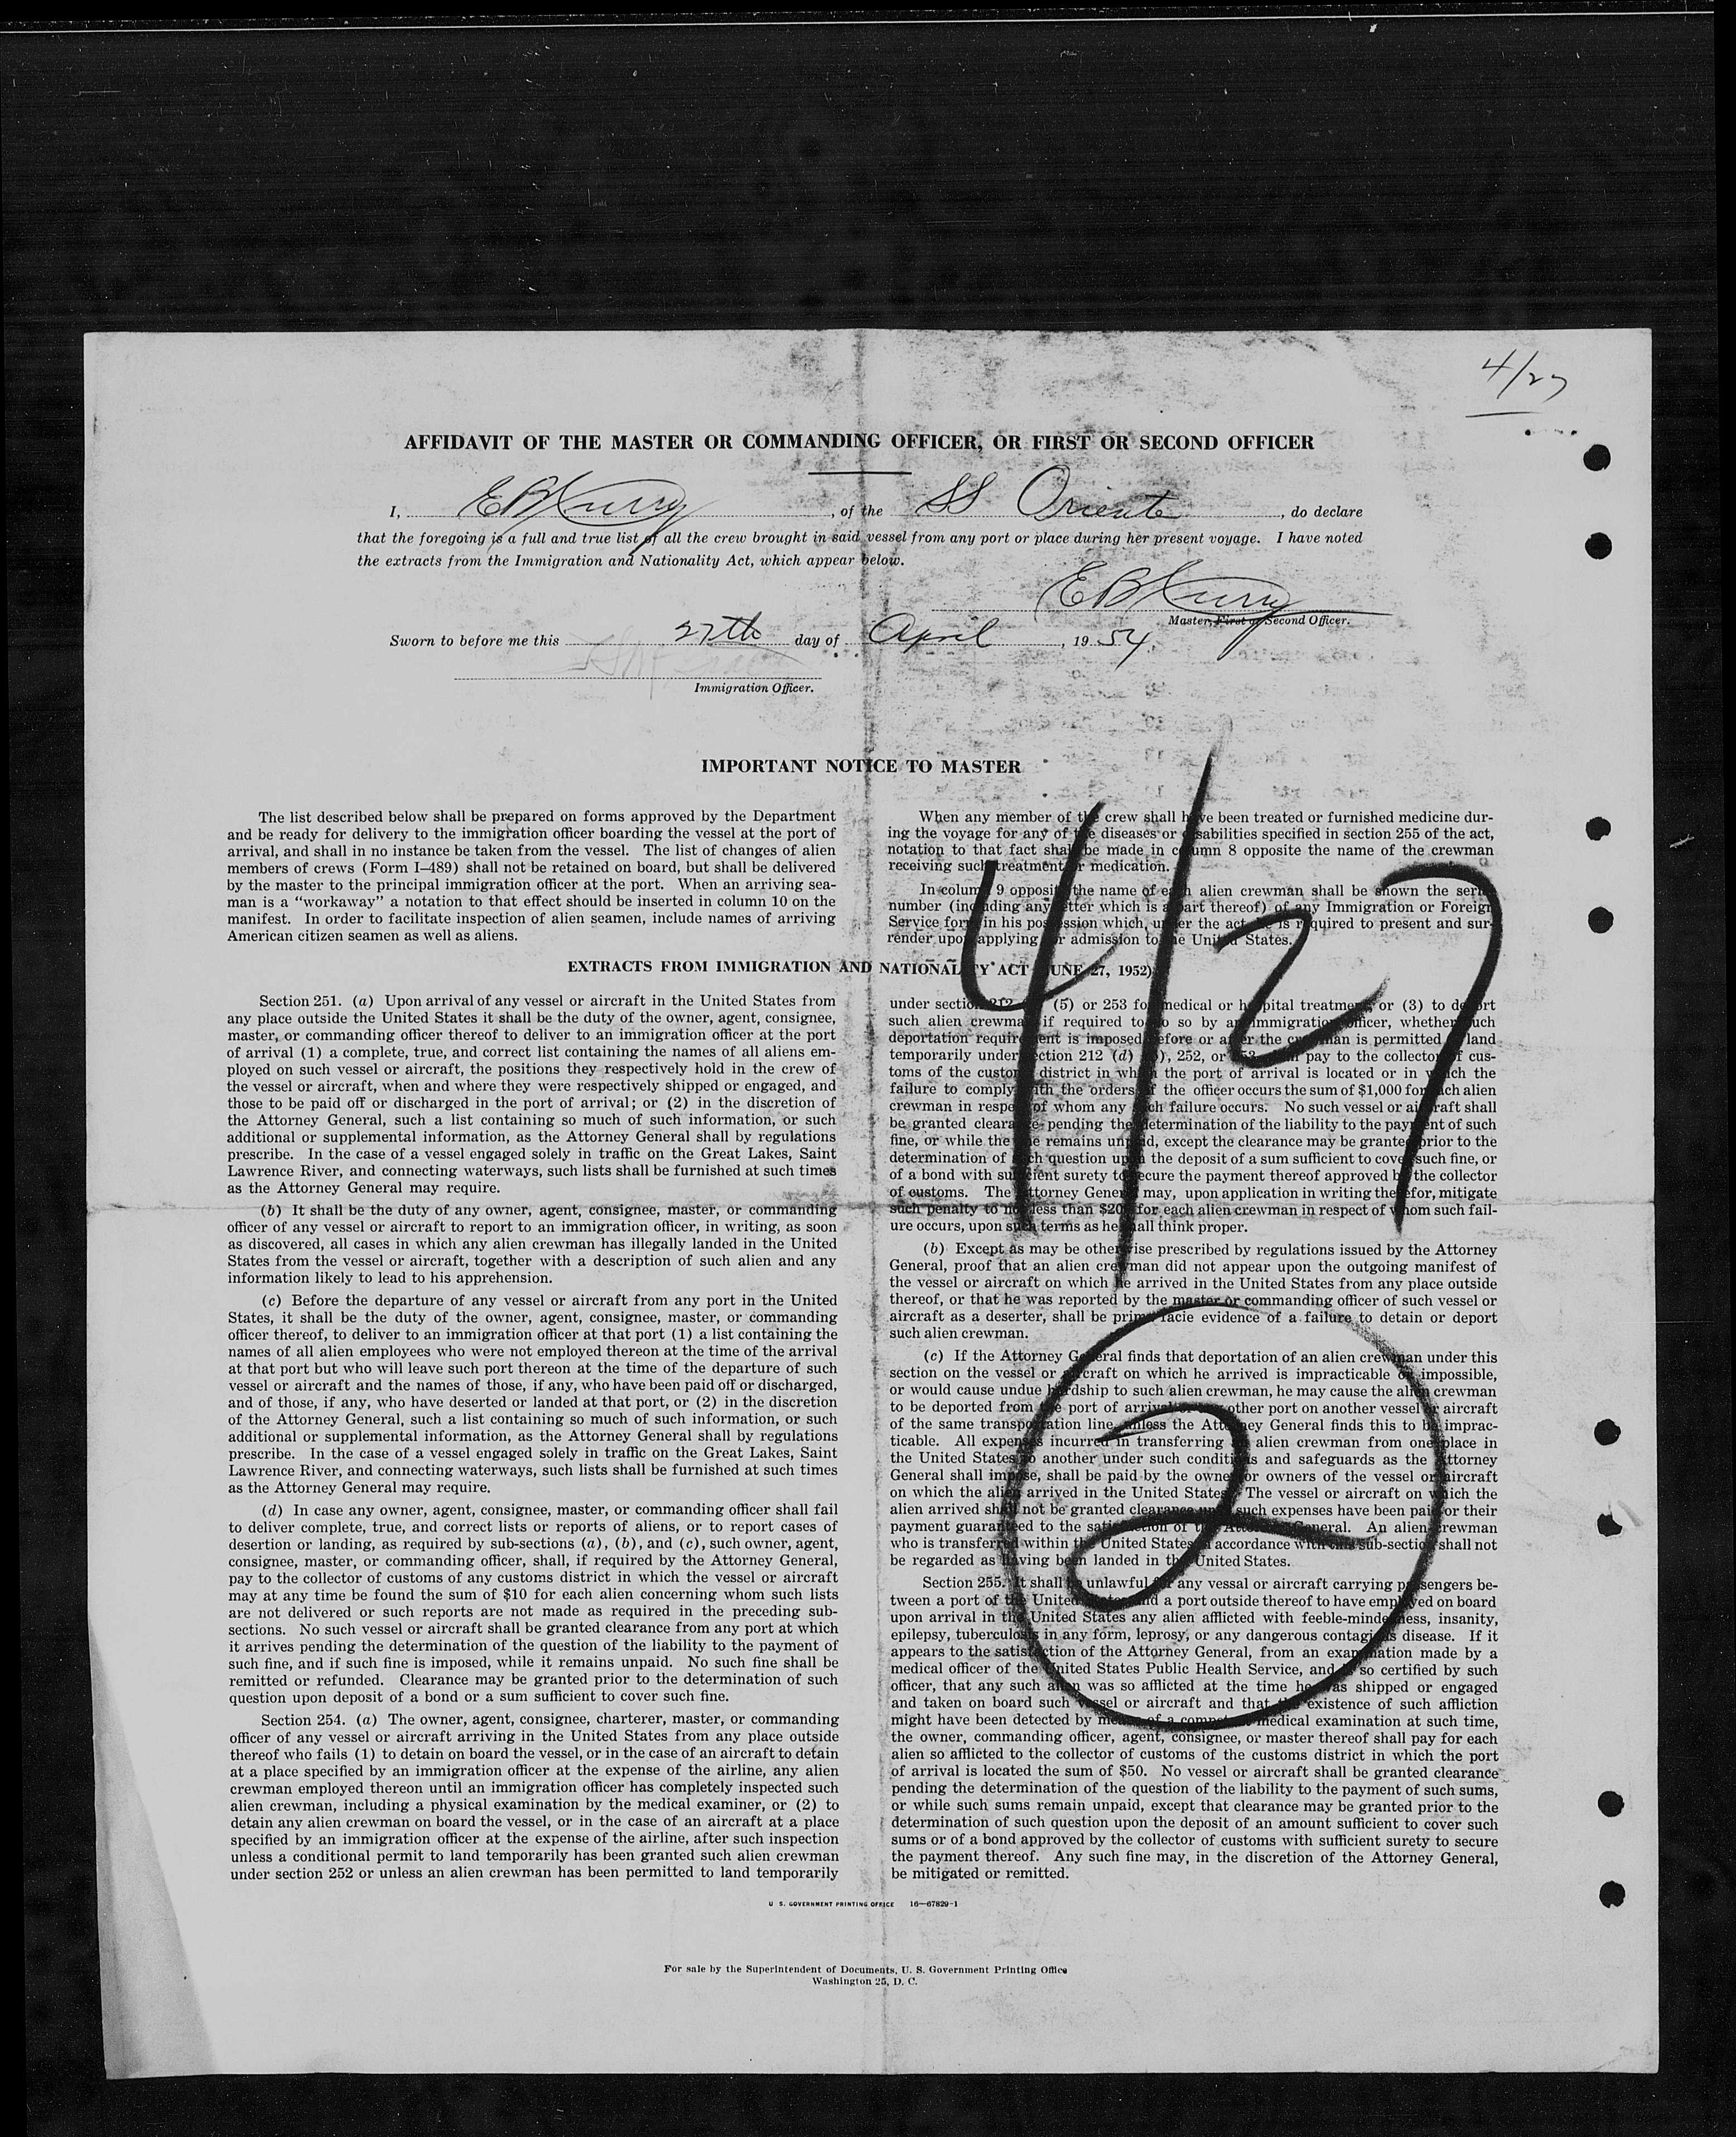 4/27
AFFIDAVIT OF THE MASTER OR COMMANDING OFFICER, OR FIRST OR SECOND OFFICER
I, E B Kurry, of the SS Oriente, do declare
that the foregoing is a full and true list of all the crew brought in said vessel from any port or place during her present voyage. I have noted
the extracts from the Immigration and Nationality Act, which appear below.
E B Kurry
Master, First or Second Officer.
Sworn to before me this 27th day of April, 1954
Immigration Officer.
IMPORTANT NOTICE TO MASTER
The list described below shall be prepared on forms approved by the Department
and be ready for delivery to the immigration officer boarding the vessel at the port of
arrival, and shall in no instance be taken from the vessel. The list of changes of alien
members of crews (Form I–489) shall not be retained on board, but shall be delivered
by the master to the principal immigration officer at the port. When an arriving sea-
man is a "workaway" a notation to that effect should be inserted in column 10 on the
manifest. In order to facilitate inspection of alien seamen, include names of arriving
American citizen seamen as well as aliens.
When any member of the crew shall have been treated or furnished medicine dur-
ing the voyage for any of the diseases or disabilities specified in section 255 of the act,
notation to that fact shall be made in column 8 opposite the name of the crewman
receiving such treatment or medication.
In column 9 opposite the name of each alien crewman shall be shown the serial
number (including any letter which is a part thereof) of any Immigration or Foreign
Service form in his possession which, under the act, he is required to present and sur-
render upon applying for admission to the United States.
EXTRACTS FROM IMMIGRATION AND NATIONALITY ACT (JUNE 27, 1952)
Section 251. (a) Upon arrival of any vessel or aircraft in the United States from
any place outside the United States it shall be the duty of the owner, agent, consignee,
master, or commanding officer thereof to deliver to an immigration officer at the port
of arrival (1) a complete, true, and correct list containing the names of all aliens em-
ployed on such vessel or aircraft, the positions they respectively hold in the crew of
the vessel or aircraft, when and where they were respectively shipped or engaged, and
those to be paid off or discharged in the port of arrival; or (2) in the discretion of
the Attorney General, such a list containing so much of such information, or such
additional or supplemental information, as the Attorney General shall by regulations
prescribe. In the case of a vessel engaged solely in traffic on the Great Lakes, Saint
Lawrence River, and connecting waterways, such lists shall be furnished at such times
as the Attorney General may require.
(b) It shall be the duty of any owner, agent, consignee, master, or commanding
officer of any vessel or aircraft to report to an immigration officer, in writing, as soon
as discovered, all cases in which any alien crewman has illegally landed in the United
States from the vessel or aircraft, together with a description of such alien and any
information likely to lead to his apprehension.
(c) Before the departure of any vessel or aircraft from any port in the United
States, it shall be the duty of the owner, agent, consignee, master, or commanding
officer thereof, to deliver to an immigration officer at that port (1) a list containing the
names of all alien employees who were not employed thereon at the time of the arrival
at that port but who will leave such port thereon at the time of the departure of such
vessel or aircraft and the names of those, if any, who have been paid off or discharged,
and of those, if any, who have deserted or landed at that port, or (2) in the discretion
of the Attorney General, such a list containing so much of such information, or such
additional or supplemental information, as the Attorney General shall by regulations
prescribe. In the case of a vessel engaged solely in traffic on the Great Lakes, Saint
Lawrence River, and connecting waterways, such lists shall be furnished at such times
as the Attorney General may require.
(d) In case any owner, agent, consignee, master, or commanding officer shall fail
to deliver complete, true, and correct lists or reports of aliens, or to report cases of
desertion or landing, as required by sub-sections (a), (b), and (c), such owner, agent,
consignee, master, or commanding officer, shall, if required by the Attorney General,
pay to the collector of customs of any customs district in which the vessel or aircraft
may at any time be found the sum of $10 for each alien concerning whom such lists
are not delivered or such reports are not made as required in the preceding sub-
sections. No such vessel or aircraft shall be granted clearance from any port at which
it arrives pending the determination of the question of the liability to the payment of
such fine, and if such fine is imposed, while it remains unpaid. No such fine shall be
remitted or refunded. Clearance may be granted prior to the determination of such
question upon deposit of a bond or a sum sufficient to cover such fine.
Section 254. (a) The owner, agent, consignee, charterer, master, or commanding
officer of any vessel or aircraft arriving in the United States from any place outside
thereof who fails (1) to detain on board the vessel, or in the case of an aircraft to detain
at a place specified by an immigration officer at the expense of the airline, any alien
crewman employed thereon until an immigration officer has completely inspected such
alien crewman, including a physical examination by the medical examiner, or (2) to
detain any alien crewman on board the vessel, or in the case of an aircraft at a place
specified by an immigration officer at the expense of the airline, after such inspection
unless a conditional permit to land temporarily has been granted such alien crewman
under section 252 or unless an alien crewman has been permitted to land temporarily
under section 212 (5) or 253 for medical or hospital treatment, or (3) to deport
such alien crewman if required to do so by an immigration officer, whether such
deportation requirement is imposed before or after the crewman is permitted to land
temporarily under section 212 (d) (5), 252, or 253, shall pay to the collector of cus-
toms of the customs district in which the port of arrival is located or in which the
failure to comply with the orders of the officer occurs the sum of $1,000 for each alien
crewman in respect of whom any such failure occurs. No such vessel or aircraft shall
be granted clearance pending the determination of the liability to the payment of such
fine, or while the fine remains unpaid, except the clearance may be granted prior to the
determination of such question upon the deposit of a sum sufficient to cover such fine, or
of a bond with sufficient surety to secure the payment thereof approved by the collector
of customs. The Attorney General may, upon application in writing therefor, mitigate
such penalty to not less than $200 for each alien crewman in respect of whom such fail-
ure occurs, upon such terms as he shall think proper.
(b) Except as may be otherwise prescribed by regulations issued by the Attorney
General, proof that an alien crewman did not appear upon the outgoing manifest of
the vessel or aircraft on which he arrived in the United States from any place outside
thereof, or that he was reported by the master or commanding officer of such vessel or
aircraft as a deserter, shall be prima facie evidence of a failure to detain or deport
such alien crewman.
(c) If the Attorney General finds that deportation of an alien crewman under this
section on the vessel or aircraft on which he arrived is impracticable or impossible,
or would cause undue hardship to such alien crewman, he may cause the alien crewman
to be deported from the port of arrival or any other port on another vessel or aircraft
of the same transportation line, unless the Attorney General finds this to be imprac-
ticable. All expenses incurred in transferring an alien crewman from one place in
the United States to another under such conditions and safeguards as the Attorney
General shall impose, shall be paid by the owner or owners of the vessel or aircraft
on which the alien arrived in the United States. The vessel or aircraft on which the
alien arrived shall not be granted clearance until such expenses have been paid or their
payment guaranteed to the satisfaction of the Attorney General. An alien crewman
who is transferred within the United States in accordance with this sub-section shall not
be regarded as having been landed in the United States.
Section 255. It shall be unlawful for any vessal or aircraft carrying passengers be-
tween a port of the United States and a port outside thereof to have employed on board
upon arrival in the United States any alien afflicted with feeble-mindedness, insanity,
epilepsy, tuberculosis in any form, leprosy, or any dangerous contagious disease. If it
appears to the satisfaction of the Attorney General, from an examination made by a
medical officer of the United States Public Health Service, and is so certified by such
officer, that any such alien was so afflicted at the time he was shipped or engaged
and taken on board such vessel or aircraft and that the existence of such affliction
might have been detected by means of a competent medical examination at such time,
the owner, commanding officer, agent, consignee, or master thereof shall pay for each
alien so afflicted to the collector of customs of the customs district in which the port
of arrival is located the sum of $50. No vessel or aircraft shall be granted clearance
pending the determination of the question of the liability to the payment of such sums,
or while such sums remain unpaid, except that clearance may be granted prior to the
determination of such question upon the deposit of an amount sufficient to cover such
sums or of a bond approved by the collector of customs with sufficient surety to secure
the payment thereof. Any such fine may, in the discretion of the Attorney General,
be mitigated or remitted.
4/27
2
U. S. GOVERNMENT PRINTING OFFICE 16—67829-1
For sale by the Superintendent of Documents, U. S. Government Printing Office
Washington 25, D. C.